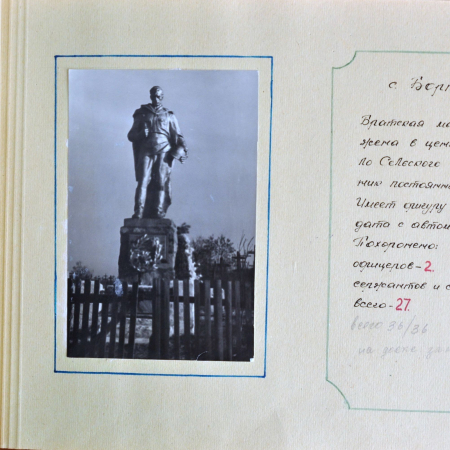 с. Бор
Братская мо
жена в цен
по Советского
ник постоянн
Имеет фигуру
дата с автом
Похоронено:
офицеров-2.
сержантов и с
всего-27.
всего 36/36
на